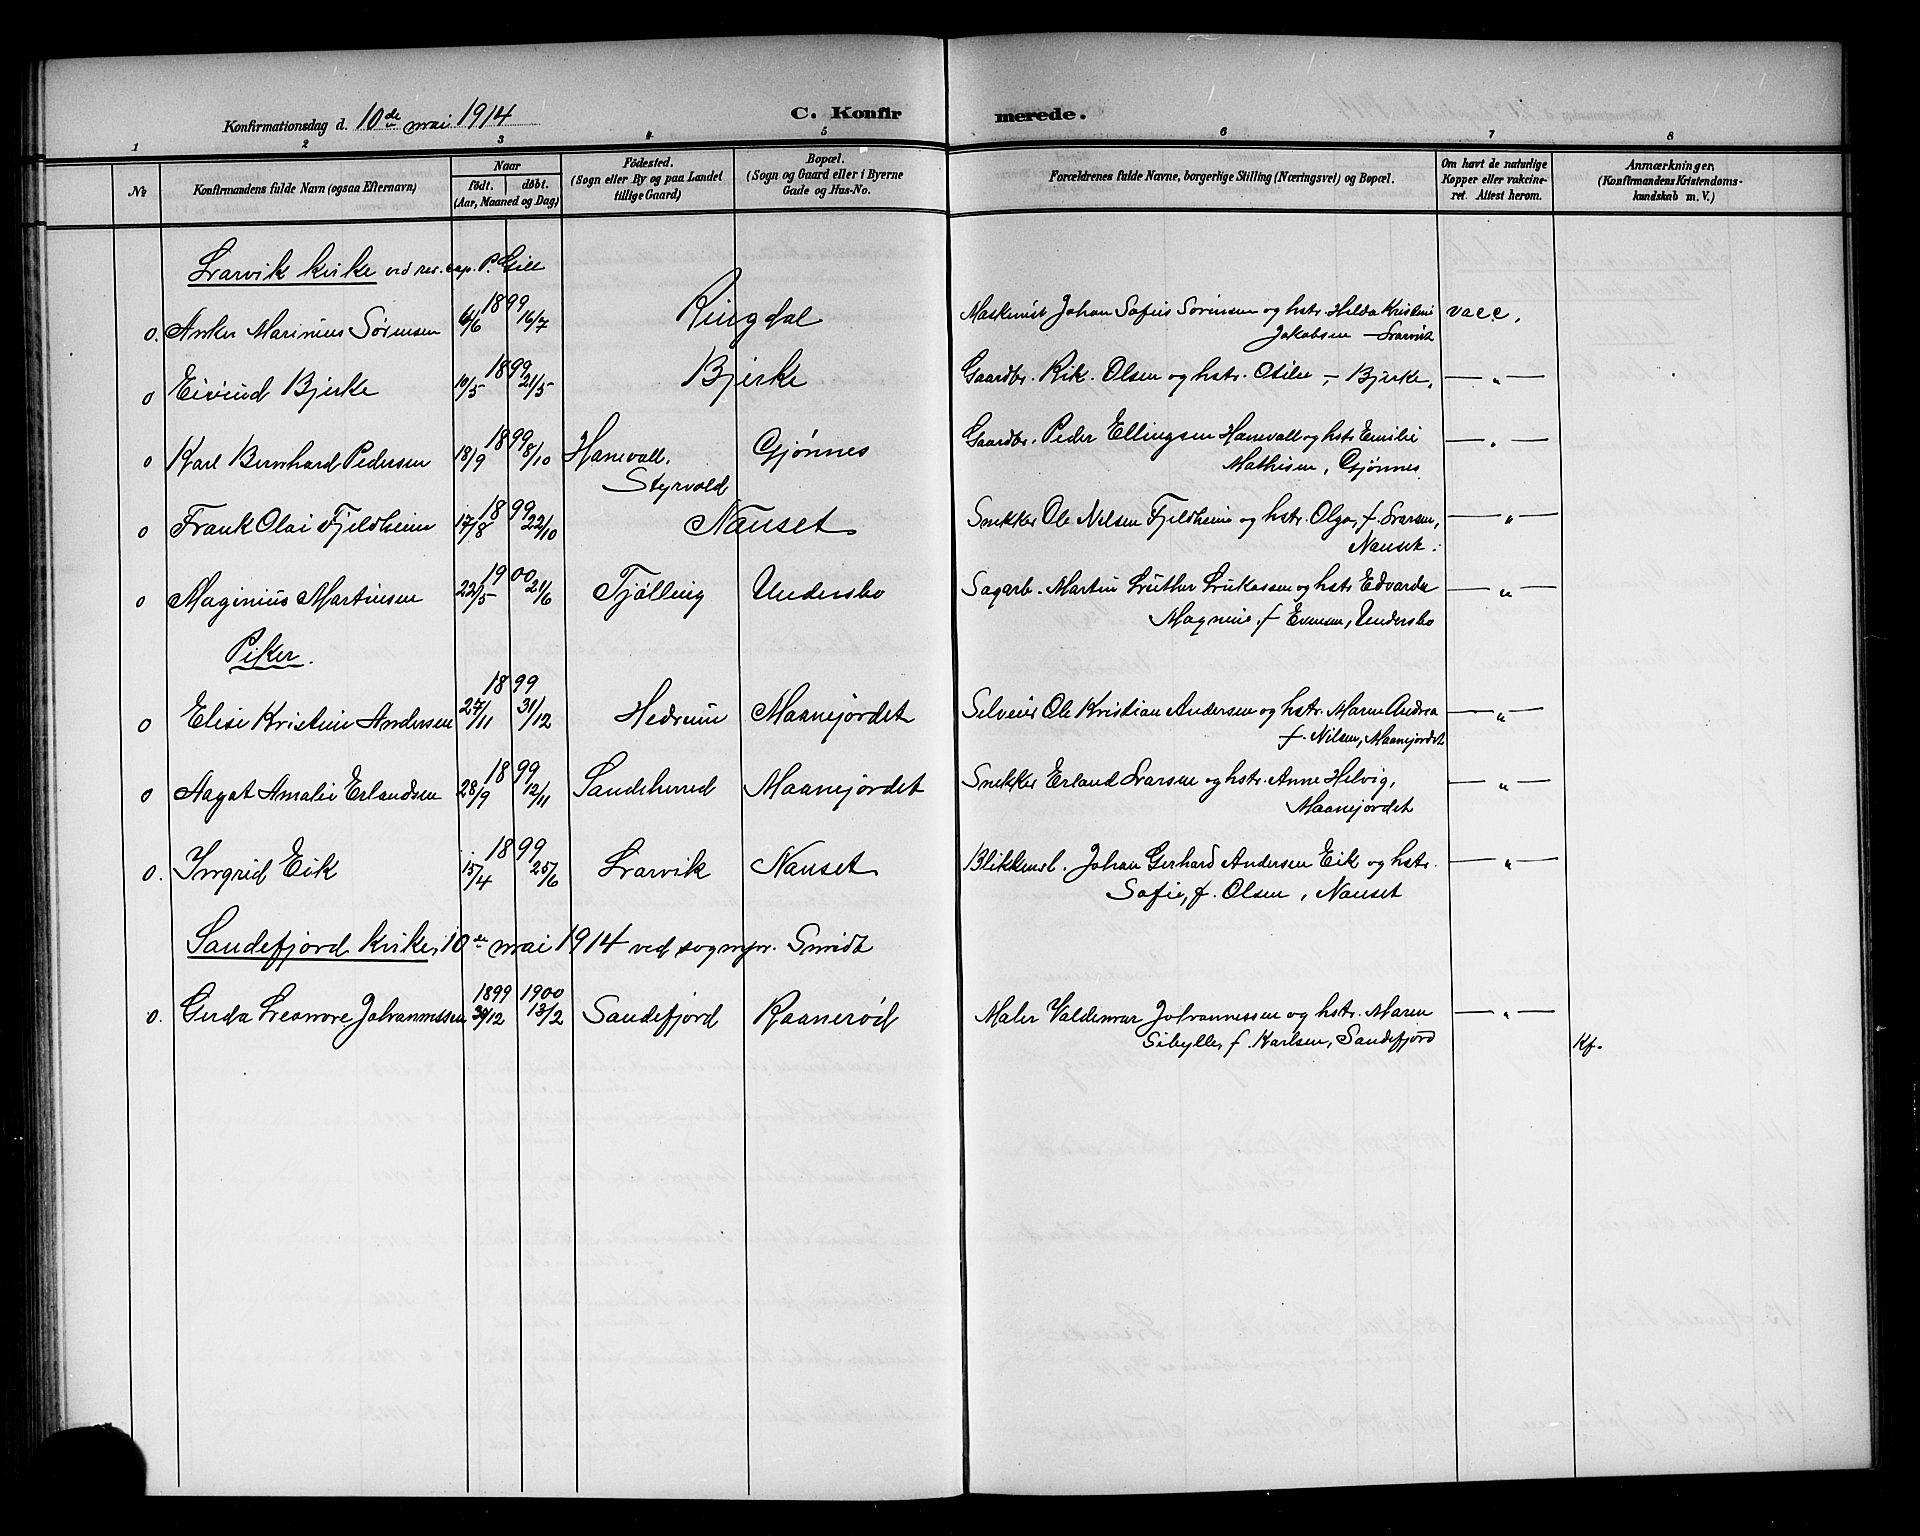 Konfirmationsdag d. 10de mai 1914
C. Konfirmerede.
1 2 3 4 5 6 7 8
No
Konfirmandens fulde Navn (ogsaa Efternavn)
Naar
født. døbt.
(Aar, Maaned og Dag)
Födested.
(Sogn eller By og paa Landet
tillige Gaard)
Bopæl.
(Sogn og Gaard eller i Byerne
Gade og Hus-No.
Forældrenes fulde Navne, borgerlige Stilling (Næringsvei) og Bopæl.
Om havt de naturlige
Kopper eller vakcine-
ret. Attest herom.
Anmærkninger,
(Konfirmandens Kristendoms-
kundskab m. V.)
Larvik kirke ved res. cap. P. Gill
o. Anker Marinius Sørensen 1899 6/6 16/7 Ringdal Maskinist Johan Sofus Sørensen og hstr. Hilda Kristine vacc.
Jakobsen – Larvik
o Eivind Bjerke 1899 10/5 21/5 Bjerke Gaardbr. Rik. Olsen og hstr. Otilie, – Bjerke, — " —
o Karl Bernhard Pedersen 1899 18/9 8/10 Hanevall, Gjønnes Gaardbr. Peder Ellingsen Hanevall og hstr Emilie — " —
Styrvold Mathisen, Gjønnes
o Frank Olai Fjeldheim 1899 17/8 22/10 Nanset Snekker Ole Nilsen Fjeldheim og hstr. Olga, f. Larsen, — " —
Nanset.
o Maginius Martinsen 1900 22/5 21/6 Tjølling Undersbo Sagarb. Martin Luther Lukassen og hstr Edvarda — " —
Magnine f. Evensen, Undersbo
Piker.
o Elise Kristine Andersen 1899 27/11 31/12 Hedrum Maanejordet Ole Kristian Andersen og hstr. Maren Andrea — " —
f. Nilsen, Maanejordet
o Aagot Amalie Erlandsen 1899 28/9 12/11 Sandeherred Maanejordet Snekker Erland Larsen og hstr. Anne Helvig, — " —
Maanejordet
o. Ingrid Eik 1899 15/4 25/6 Larvik Nanset Blikkensl. Johan Gerhard Andersen Eik og hstr. — " —
Sofie, f. Olsen, Nanset
Sandefjord kirke, 10de mai 1914 ved sognepr. Smidt
o. Gerda Leonore Johannessen 1899 30/12 1900 13/2 Sandefjord Raanerød Maler Valdemar Johannessen og hstr. Maren — " —
Sibylle, f. Karlsen, Sandefjord Kf.